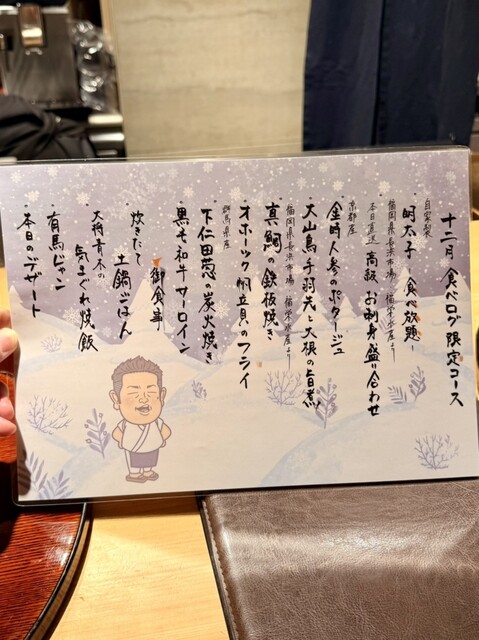 十二月 食べログ限定コース
自家製
明太子 ー食べ放題ー
福岡県長浜市場 備栄水産より
本日直送 高級 お刺身盛り合わせ
京都産
金時人参のポタージュ
大山鳥手羽先と大根の旨煮
福岡県長浜市場 備栄水産より
真鯛の鉄板焼き
オホーツク帆立貝のフライ
群馬県産
下仁田葱の炭火焼き
黒毛和牛サーロイン
御食事
炊きたて 土鍋ごはん
大将青木の 気まぐれ焼飯
有馬ジャン
本日のデザート